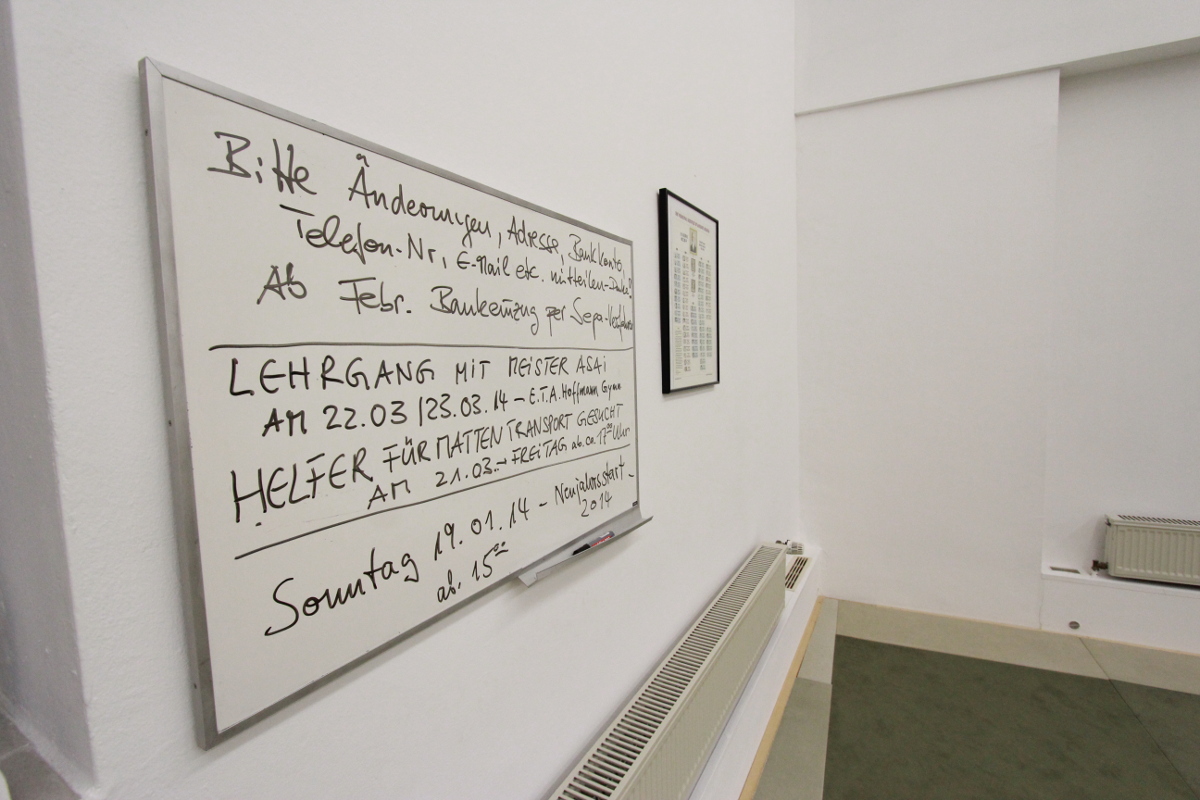 Bitte Änderungen, Adresse, Bankkonto,
Telefon-Nr, E-Mail etc. mitteilen-Danke!
Ab Febr. Bankeinzug per Sepa-Verfahren
LEHRGANG MiT MEiSTER ASAi
AM 22.03/23.03.14 – E.T.A. Hoffmann Gymn
HELFER FÜR MATTENTRANSPORT GESUCHT
AM 21.03. – FREiTAG ab. ca. 17⁰⁰ Uhr
Sonntag 19.01.14 – Neujahrsstart –
2014
ab. 15⁰⁰